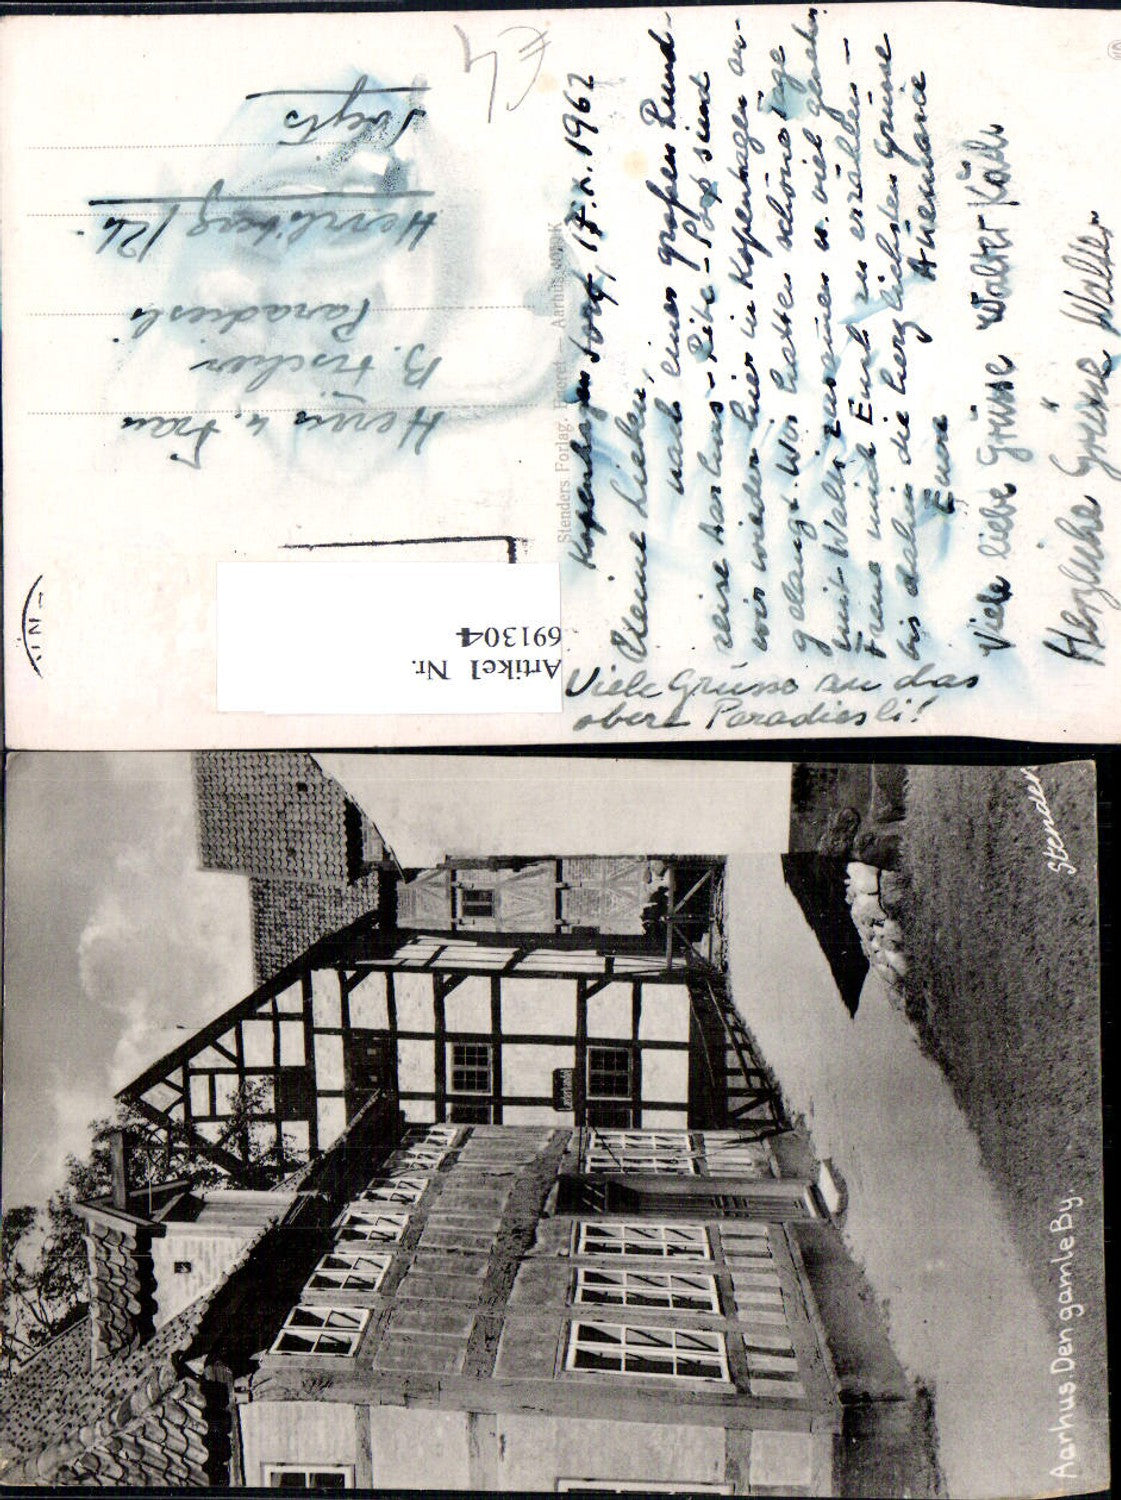 Kopenhagen Torsf, 17.X.1962
Meine Lieben,
nach einer grossen Rund-
reise Aarhus - Ribe - Pop sind
wir wieder hier in Kopenhagen an-
gelangt. Wir hatten schöne Tage
mit Walti zusammen u. viel gesehen.
Freue mich Euch zu erzählen -
bis dahin die herzlichsten Grüsse
Euere Annemarie
Viele liebe Grüsse Walter Käch
Herzliche Grüsse Walter
Viele Grüsse an das
obere Paradiesli!
Stenders Forlag. Eneret - Aarhus
Herrn u. Frau
B. Fischer
Paradiesli
Herrliberg / Zh.
£4
Artikel Nr.
691304
Stender
Aarhus. Den gamle By.